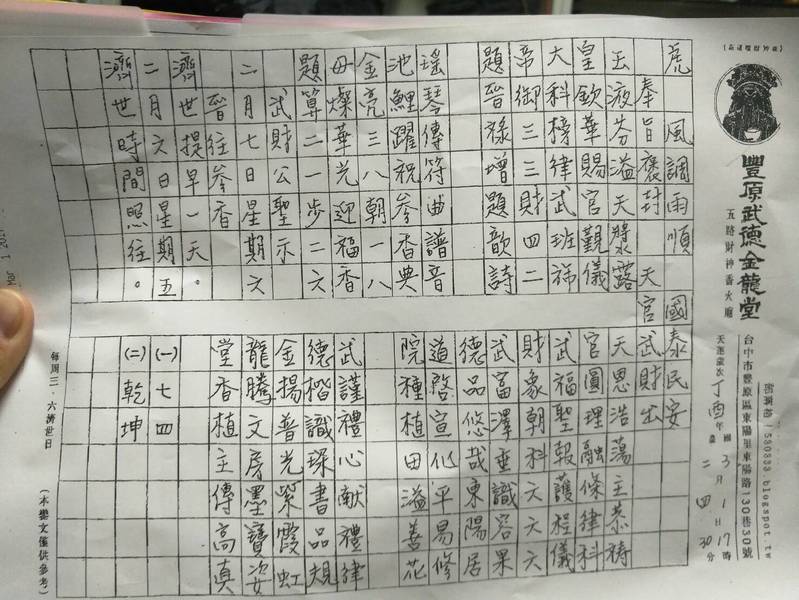 豐原武德金龍堂
五路財神香火廟
台中市豐原區東陽里東陽路130巷30號
1530333.blogspot.tw
天運歲次丁酉年國3月1日17時30分
農二四
虎 風調雨順 國泰民安
奉旨褒封 天官武財出
玉液芬溢天漿露 天恩浩蕩主恭禱
皇欽華賜官觀儀 官圓理融條律科
大科榜律武班 武福聖報護程儀
帝御三三財四二 財象朝科六六六
題晉祿增題歆詩 武富澤垂識容果
德品悠哉東陽居
瑤琴傳符曲譜音 道啓宣化平易修
池鯉躍祝參香典 院種植田溢善花
金亮三八朝一八
母燦華光迎福香 武謹禮心献禮律
題算二一步二六 德楷識琛書品規
武財公聖示 金揚普光紫霞虹
二月七日星期六 龍騰文房墨寶姿
晉往參香 堂香植主傳高真
濟世提早一天。
二月六日星期五 (一)七四
濟世時間照往。 (二)乾坤
每周三、六濟世日
(本鸞文僅供參考)